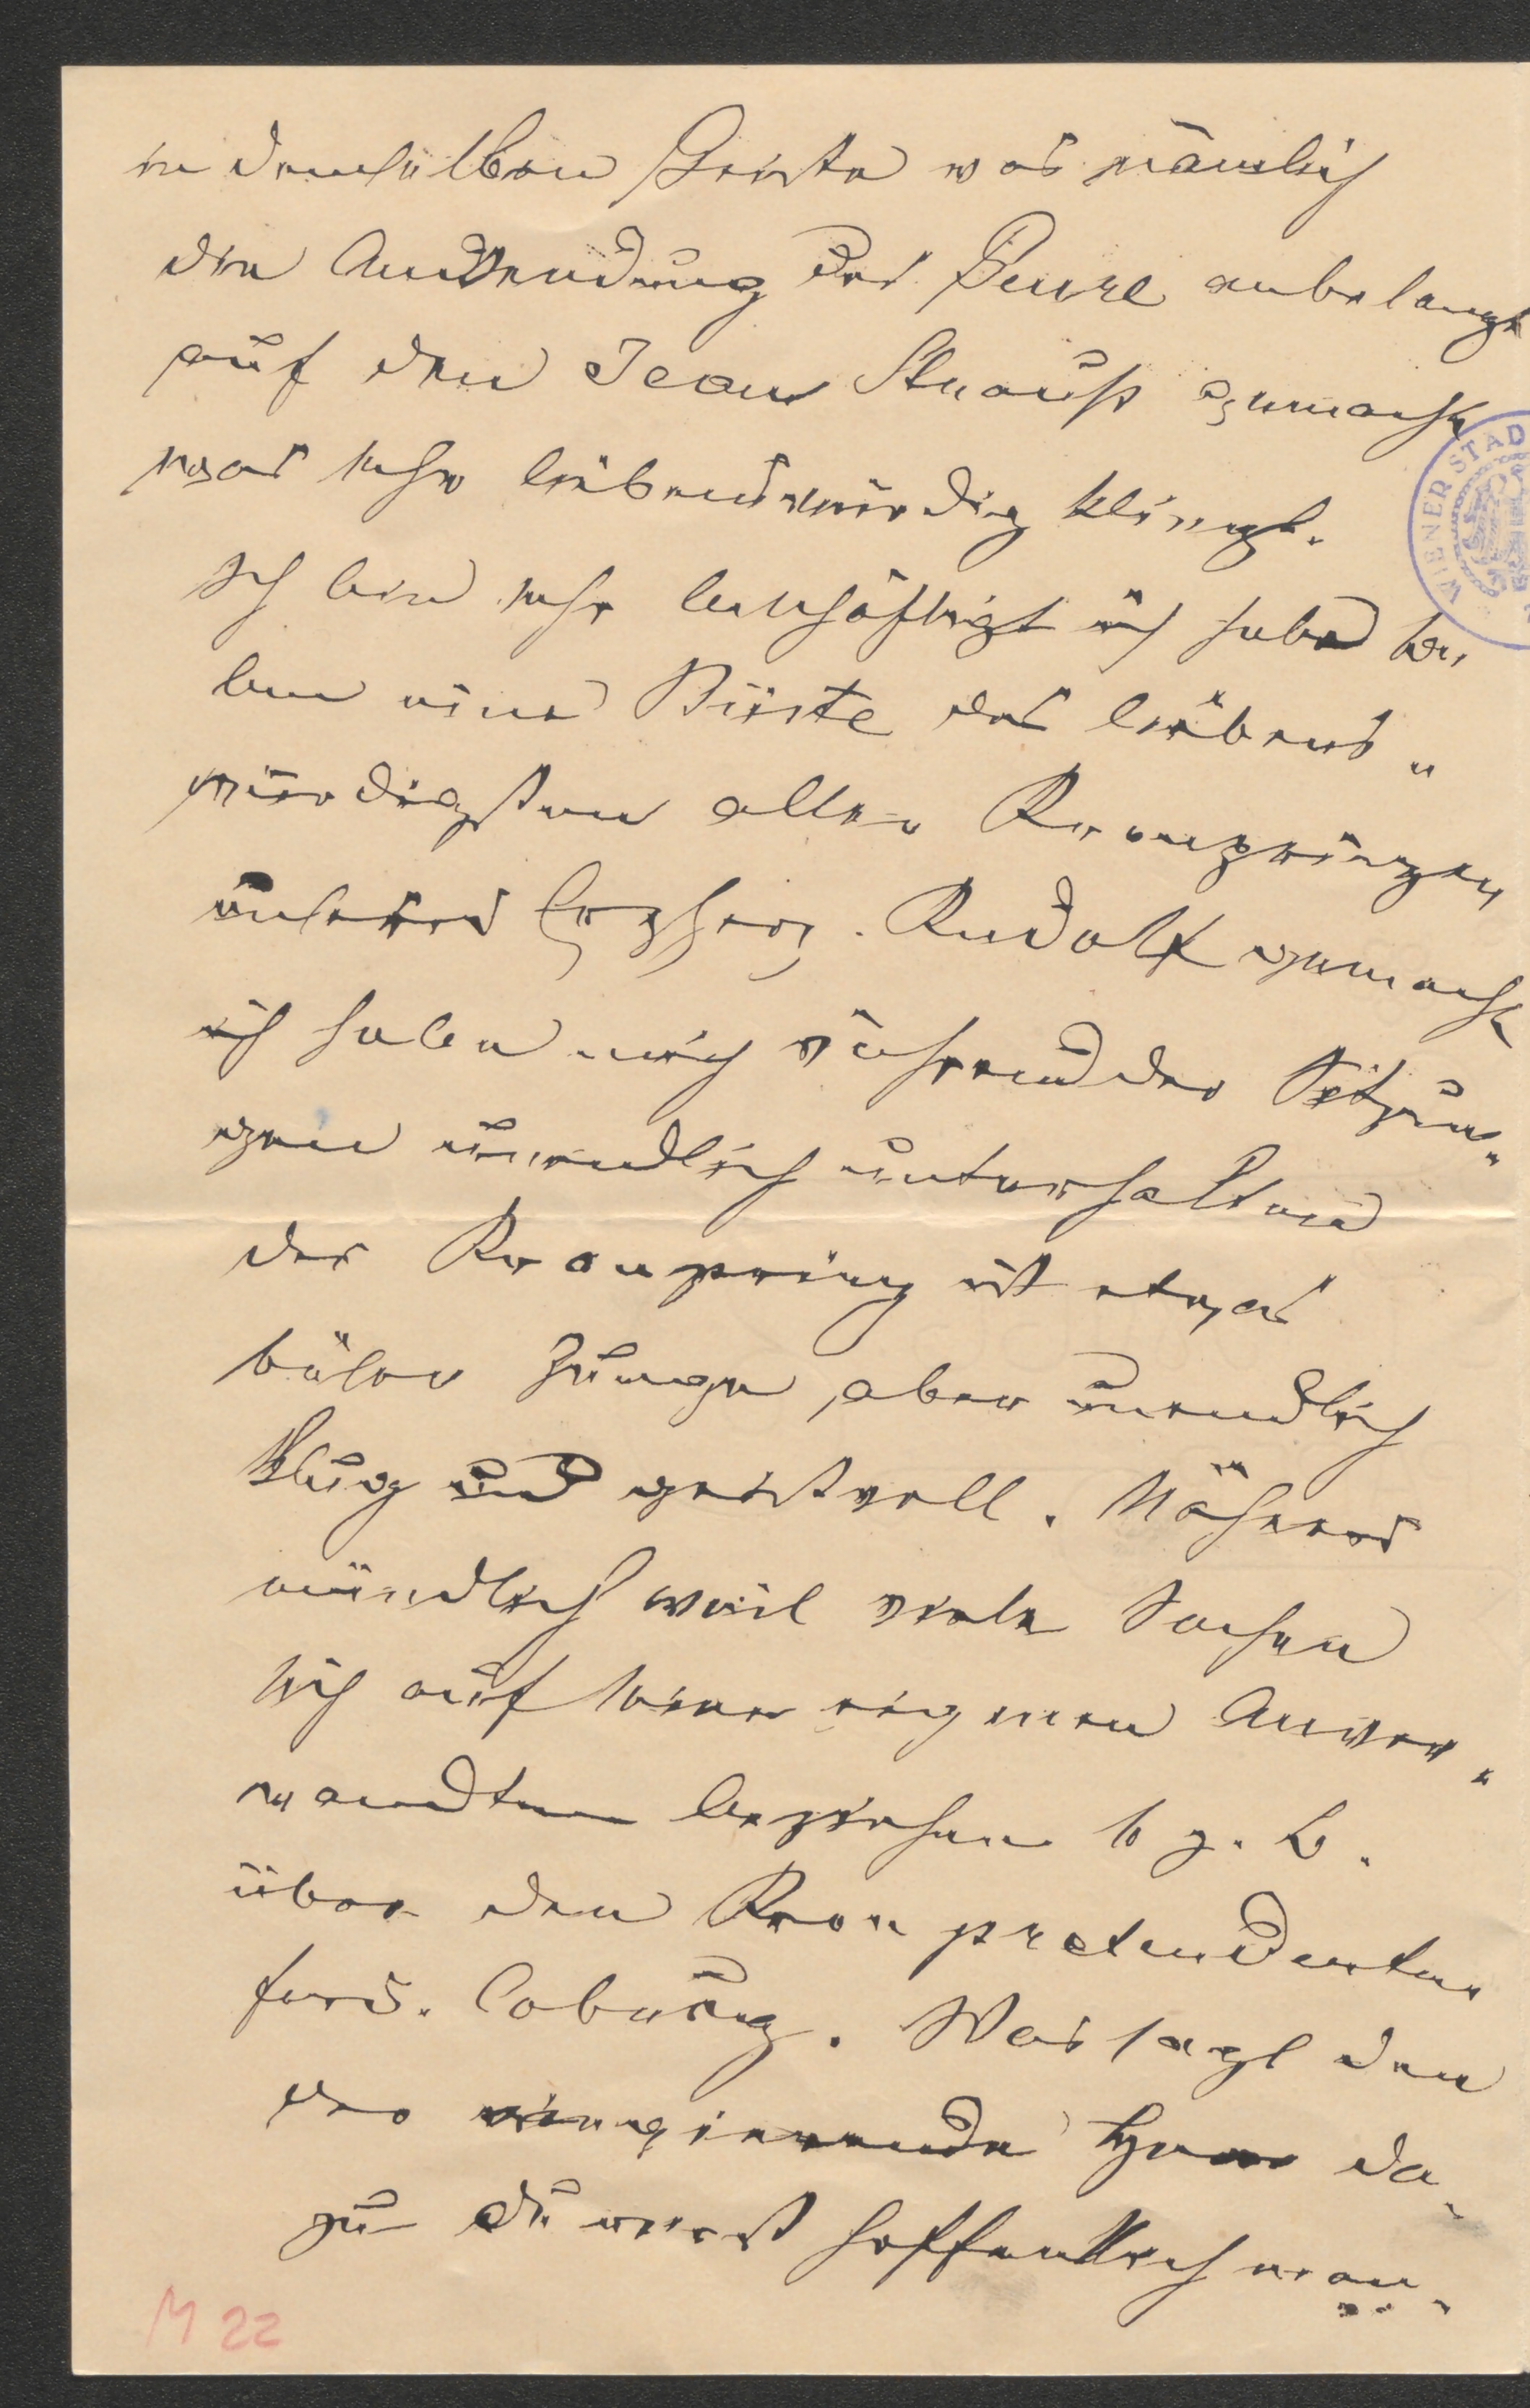 in demselben Geiste was nämlich
die Anwendung des  anbelangt
auf den Jean Strauß gemacht
was sehr liebenswürdig klingt.
Ich bin sehr beschäftigt ich habe so„
ben eine Büste des liebens„
würdigsten aller Kronprinzen
unseres Erzherz. Rudolf gemacht
ich habe mich während der Sitzun„
gen unendlich unterhalten
der Kronprinz ist etwas
böser Zunge, aber unendlich
klug und geistvoll. Näheres
mündlich weil viele Sachen
sich auf seine eigenen Anver„
wandten beziehen so z. B.
über den Kronpretendenten
Ferd. Coburg. Was sagt den
der Herr da„
zu Du wirst hoffentlich man„
M 22
WIENER STAD